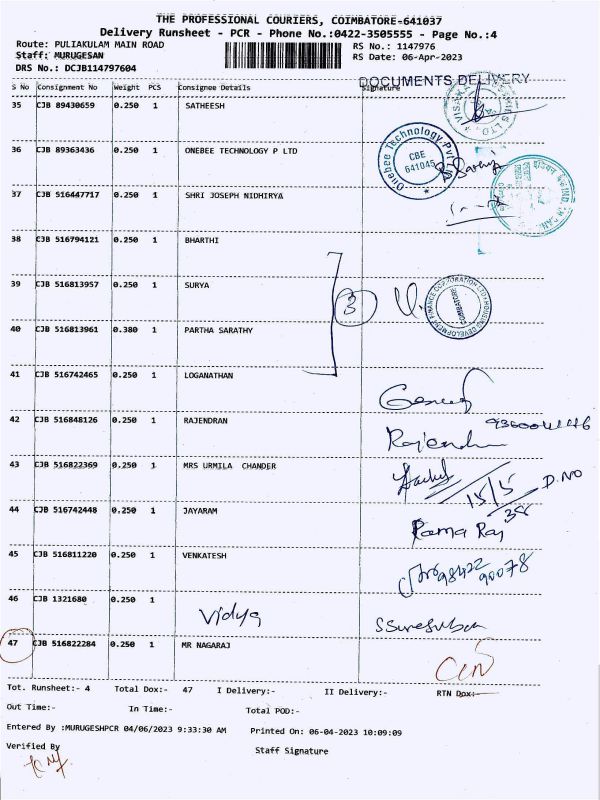 THE PROFESSIONAL COURIERS, COIMBATORE-641037
Delivery Runsheet - PCR - Phone No.:0422-3505555 - Page No.:4
Route: PULIAKULAM MAIN ROAD RS No.: 1147976
Staff: MURUGESAN RS Date: 06-Apr-2023
DRS No.: DCJB114797604
DOCUMENTS DELIVERY
S No Consignment No Weight PCS Consignee Details Signature
35 CJB 89430659 0.250 1 SATHEESH
36 CJB 89363436 0.250 1 ONEBEE TECHNOLOGY P LTD
Onebee Technology Pvt
CBE
641045
37 CJB 516447717 0.250 1 SHRI JOSEPH NIDHIRYA
38 CJB 516794121 0.250 1 BHARTHI
39 CJB 516813957 0.250 1 SURYA
3
COIMBATORE
40 CJB 516813961 0.380 1 PARTHA SARATHY
41 CJB 516742465 0.250 1 LOGANATHAN
42 CJB 516848126 0.250 1 RAJENDRAN
43 CJB 516822369 0.250 1 MRS URMILA CHANDER
15/5 D.NO
38
44 CJB 516742448 0.250 1 JAYARAM
Rama Raj
45 CJB 516811220 0.250 1 VENKATESH
98422
90078
46 CJB 1321680 0.250 1
Vidya
47 CJB 516822284 0.250 1 MR NAGARAJ
Tot. Runsheet:- 4 Total Dox:- 47 I Delivery:- II Delivery:- RTN Dox:-
Out Time:- In Time:- Total POD:-
Entered By :MURUGESHPCR 04/06/2023 9:33:30 AM Printed On: 06-04-2023 10:09:09
Verified By Staff Signature